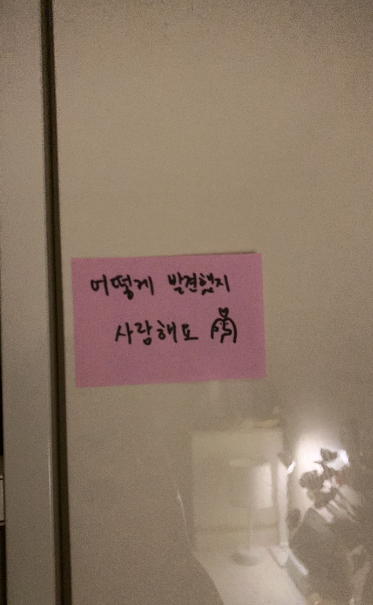 어떻게 발견했지
사람해요